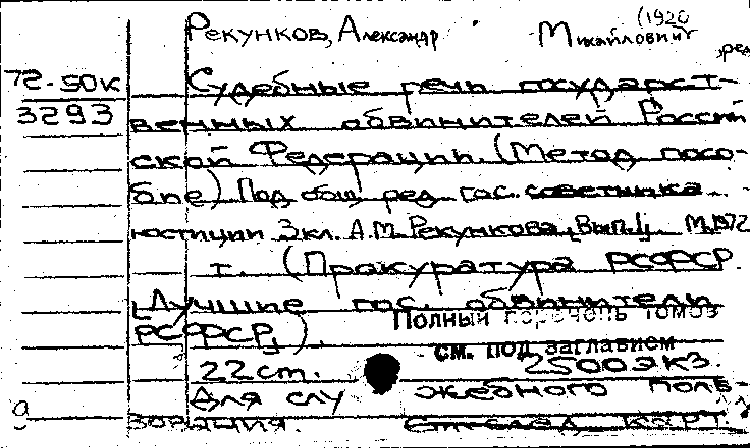 Рекунков, Александр Михайлович (1920
,ред
72-50к Судебные речи государст-
3293 венных обвинителей Россий
ской Федерации. (Метод. посо-
бие) Под общ. ред. гос. советника
юстиции 3 кл. А.М. Рекункова. Вып. М. 1972
т. (Прокуратура РСФСР.
[Лучшие гос. обвинители
РСФСР])
Полный перечень томов
см. под заглавием
22 ст. 2500 экз.
Для служебного поль-
зования.